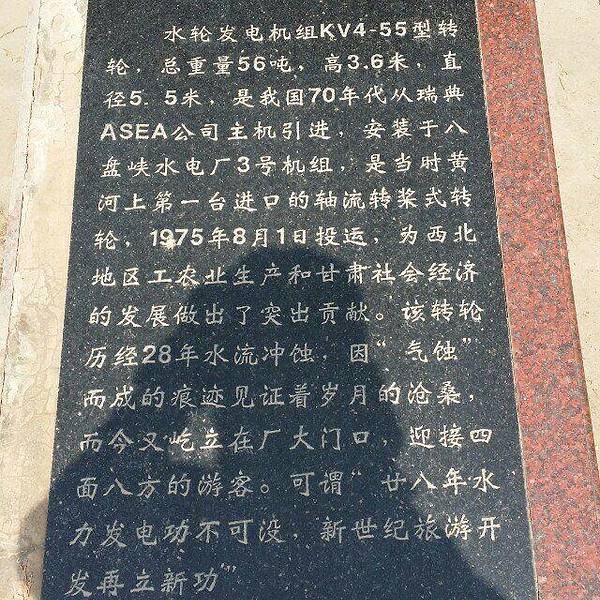 水轮发电机组KV4-55型转
轮，总重量56吨，高3.6米，直
径5.5米，是我国70年代从瑞典
ASEA公司主机引进，安装于八
盘峡水电厂3号机组，是当时黄
河上第一台进口的轴流转桨式转
轮，1975年8月1日投运，为西北
地区工农业生产和甘肃社会经济
的发展做出了突出贡献。该转轮
历经28年水流冲蚀，因“气蚀”
而成的痕迹见证着岁月的沧桑，
而今又屹立在厂大门口，迎接四
面八方的游客。可谓“廿八年水
力发电功不可没，新世纪旅游开
发再立新功”